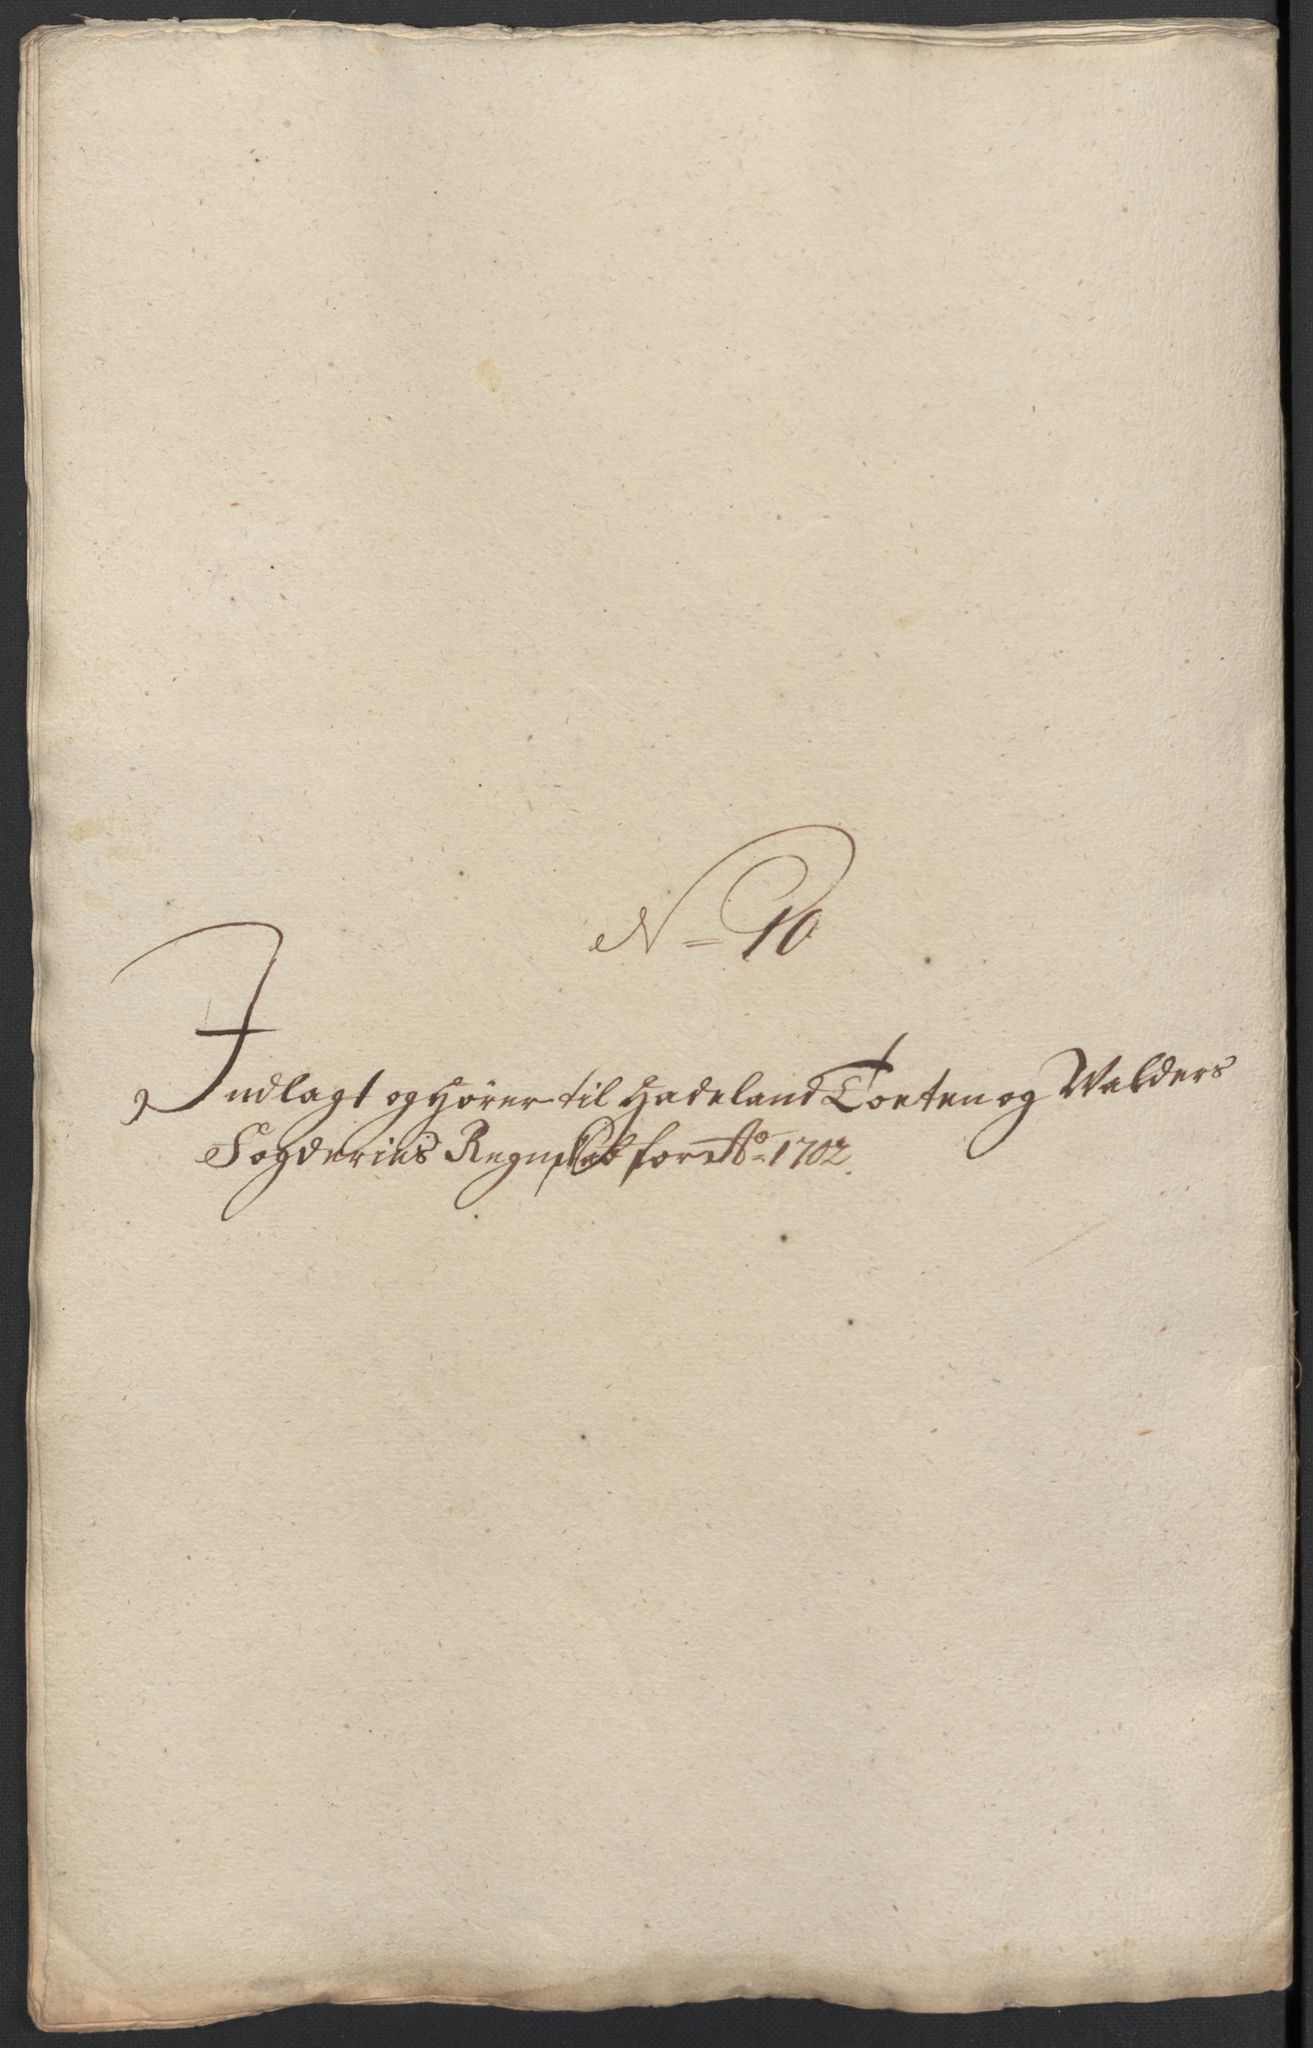 N = 10
Indlagt og hører til Hadeland Toeten og Walders
Fogderies Regnskab for Ao 1702.